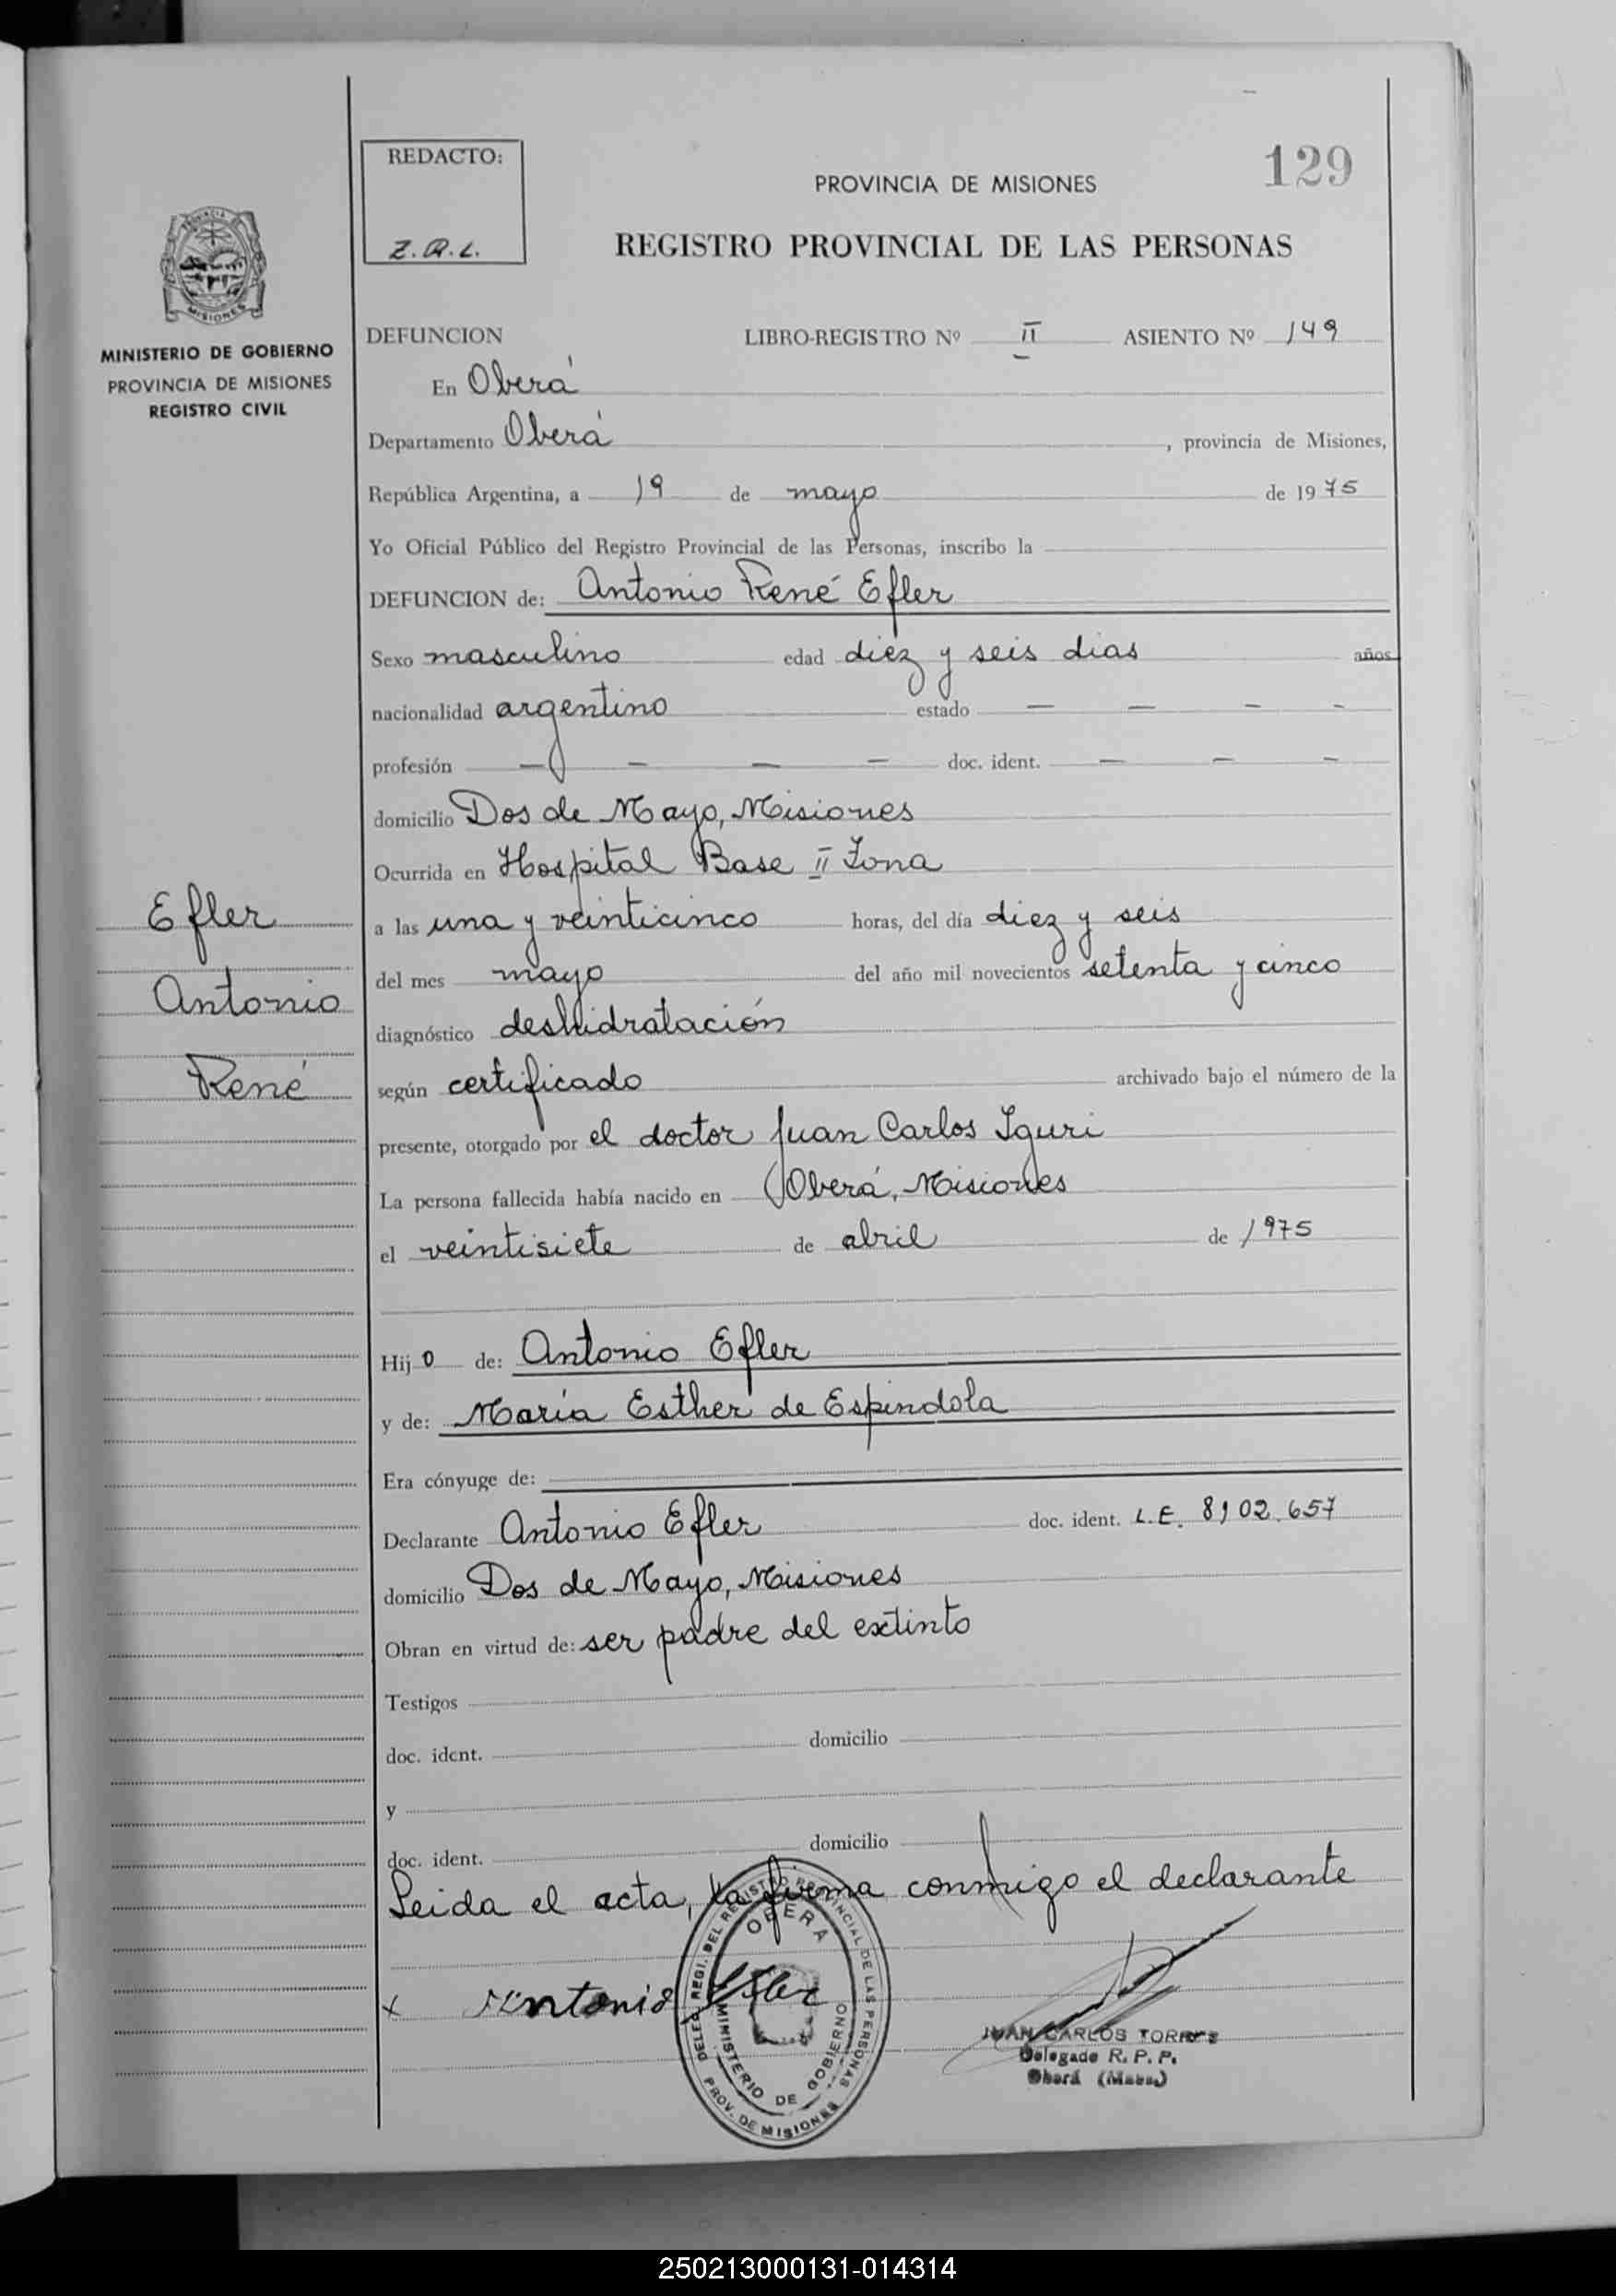 129
REDACTO:
Z.R.L.
PROVINCIA DE MISIONES
REGISTRO PROVINCIAL DE LAS PERSONAS
PROVINCIA DE
MISIONES
MINISTERIO DE GOBIERNO
PROVINCIA DE MISIONES
REGISTRO CIVIL
DEFUNCION LIBRO-REGISTRO Nº II ASIENTO Nº 149
En Oberá
Departamento Oberá, provincia de Misiones,
República Argentina, a 19 de mayo de 1975
Yo Oficial Público del Registro Provincial de las Personas, inscribo la
DEFUNCION de: Antonio René Efler
Sexo masculino edad diez y seis dias años
nacionalidad argentino estado — — - -
profesión — — — — doc. ident. — — -
domicilio Dos de Mayo, Misiones
Ocurrida en Hospital Base II Zona
a las una y veinticinco horas, del día diez y seis
del mes mayo del año mil novecientos setenta y cinco
diagnóstico deshidratación
según certificado archivado bajo el número de la
presente, otorgado por el doctor Juan Carlos Iguri
La persona fallecida había nacido en Oberá, Misiones
el veintisiete de abril de 1975
Efler
Antonio
René
Hijo de: Antonio Efler
y de: María Esther de Espindola
Era cónyuge de:
Declarante Antonio Efler doc. ident. L.E. 8102.657
domicilio Dos de Mayo, Misiones
Obran en virtud de: ser padre del extinto
Testigos
doc. ident. domicilio
y
doc. ident. domicilio
Leida el acta, la firma conmigo el declarante
x Antonio Efler
DELEG. REGI. DEL REGISTRO PROVINCIAL DE LAS PERSONAS
OBERA
MINISTERIO DE GOBIERNO
PROV. DE MISIONES
JUAN CARLOS TORRES
Delegado R. P. P.
Oberá (Mnes.)
250213000131-014314